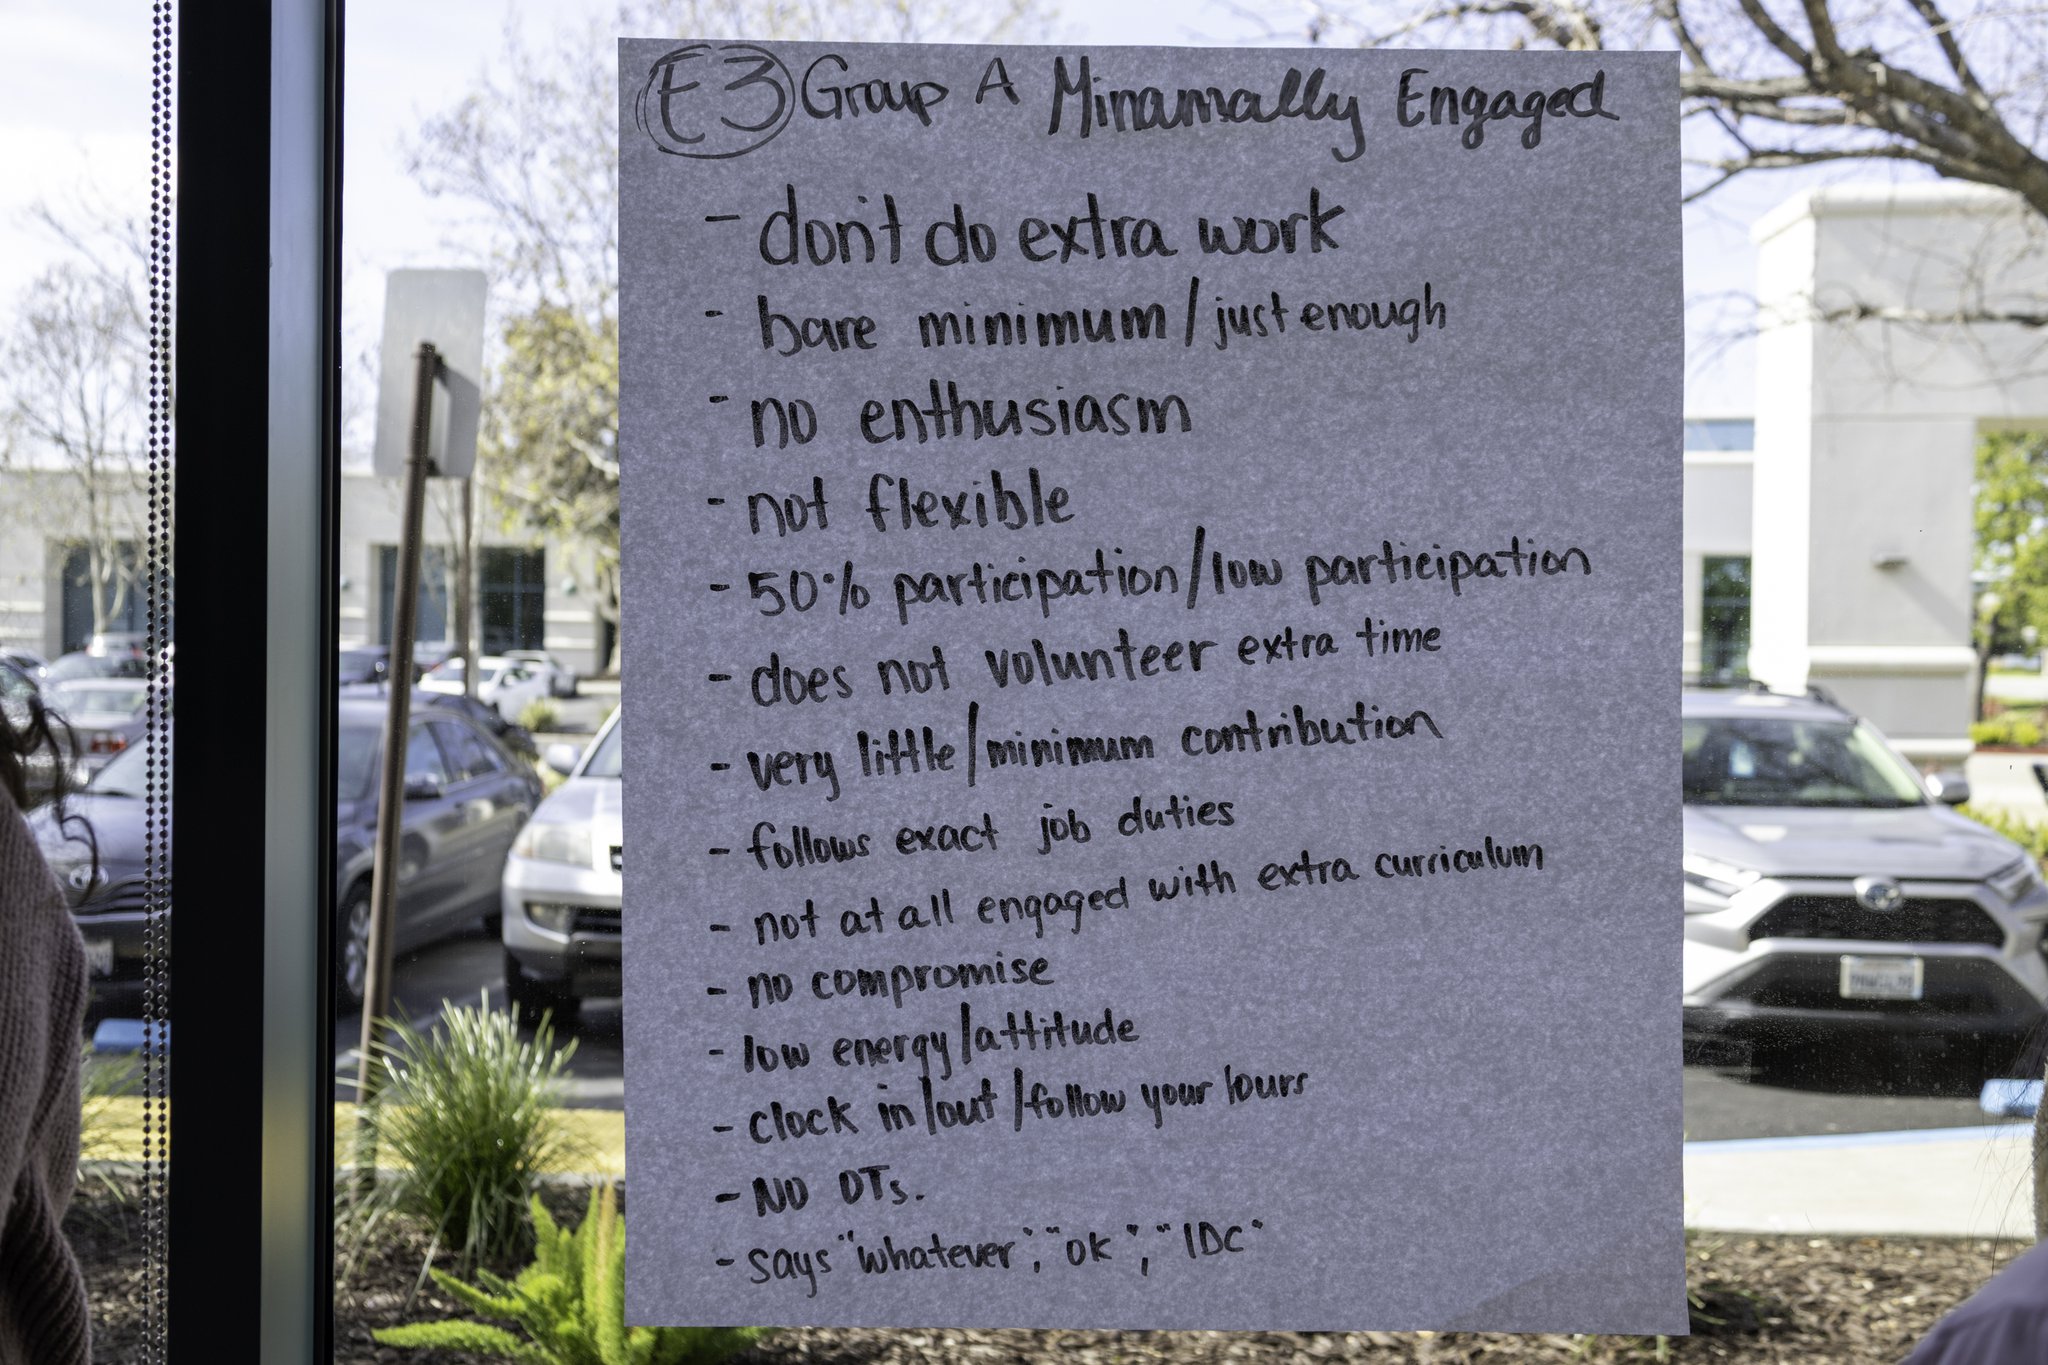 E3 Group A Minamally Engaged
- don't do extra work
- bare minimum/just enough
- no enthusiasm
- not flexible
- 50% participation/low participation
- does not volunteer extra time
- very little/minimum contribution
- follows exact job duties
- not at all engaged with extra curriculum
- no compromise
- low energy/attitude
- clock in/out/follow your hours
- NO OTs.
- says "whatever", "OK", "IDC"